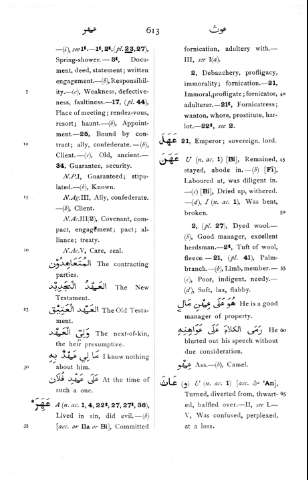 عهد
613
عوث
—(i), see 1⁸.—1⁸, 2⁴ (pl. 23, 27),
Spring-shower.—5⁴, Docu-
ment, deed, statement; written
engagement.—(b), Responsibil-
5 ity.—(c), Weakness, defective-
ness, faultiness.—17, (pl. 44),
Place of meeting; rendez-vous,
resort; haunt.—(b), Appoint-
ment.—25, Bound by con-
10 tract; ally, confederate.—(b),
Client.—(c), Old, ancient.—
34, Guarantee, security.
N.P.I, Guaranteed; stipu-
lated.—(b), Known.
15 N.Ag.III, Ally, confederate.
—(b), Client.
N.Ac.III(2), Covenant, com-
pact, engagement; pact; al-
liance; treaty.
20 N.Ac.V, Care, zeal.
المتعاهدون The contracting
parties.
العهد الجديد The New
Testament.
25 العهد العتيق The Old Testa-
ment.
ولي العهد The next-of-kin,
the heir presumptive.
ما لي عهد به I know nothing
30 about him.
على عهد فلان At the time of
such a one.
*عهر A (n. ac. 1, 4, 22⁴, 27, 27⁴, 36),
Lived in sin, did evil.—(b)
35 [acc. or Ila or Bi], Committed
fornication, adultery with.—
III, see I(a).
2, Debauchery, profligacy,
immorality; fornication.—21,
Immoral, profligate; fornicator, 40
adulterer.—21⁴, Fornicatress;
wanton, whore, prostitute, har-
lot.—22⁴, see 2.
21, Emperor; sovereign, lord.
عهن U (n. ac. 1) [Bi], Remained, 45
stayed, abode in.—(b) [Fi],
Laboured at, was diligent in.
—(c) [Bi], Dried up, withered.
—(d), I (n. ac. 1), Was bent,
broken. 50
2, (pl. 27), Dyed wool.—
(b), Good manager, excellent
herdsman.—2⁴, Tuft of wool,
fleece.—21, (pl. 41), Palm-
branch.—(b), Limb, member.— 55
(c), Poor, indigent, needy.—
(d), Soft, lax, flabby.
هو عهن مال He is a good
manager of property.
رمى الكلام على عواهنه He 60
blurted out his speech without
due consideration.
Ass.—(b), Camel.
عاث (و) U (n. ac. 1) [acc. & 'An],
Turned, diverted from, thwart- 65
ed, baffled over.—II, see I.—
V, Was confused, perplexed,
at a loss.